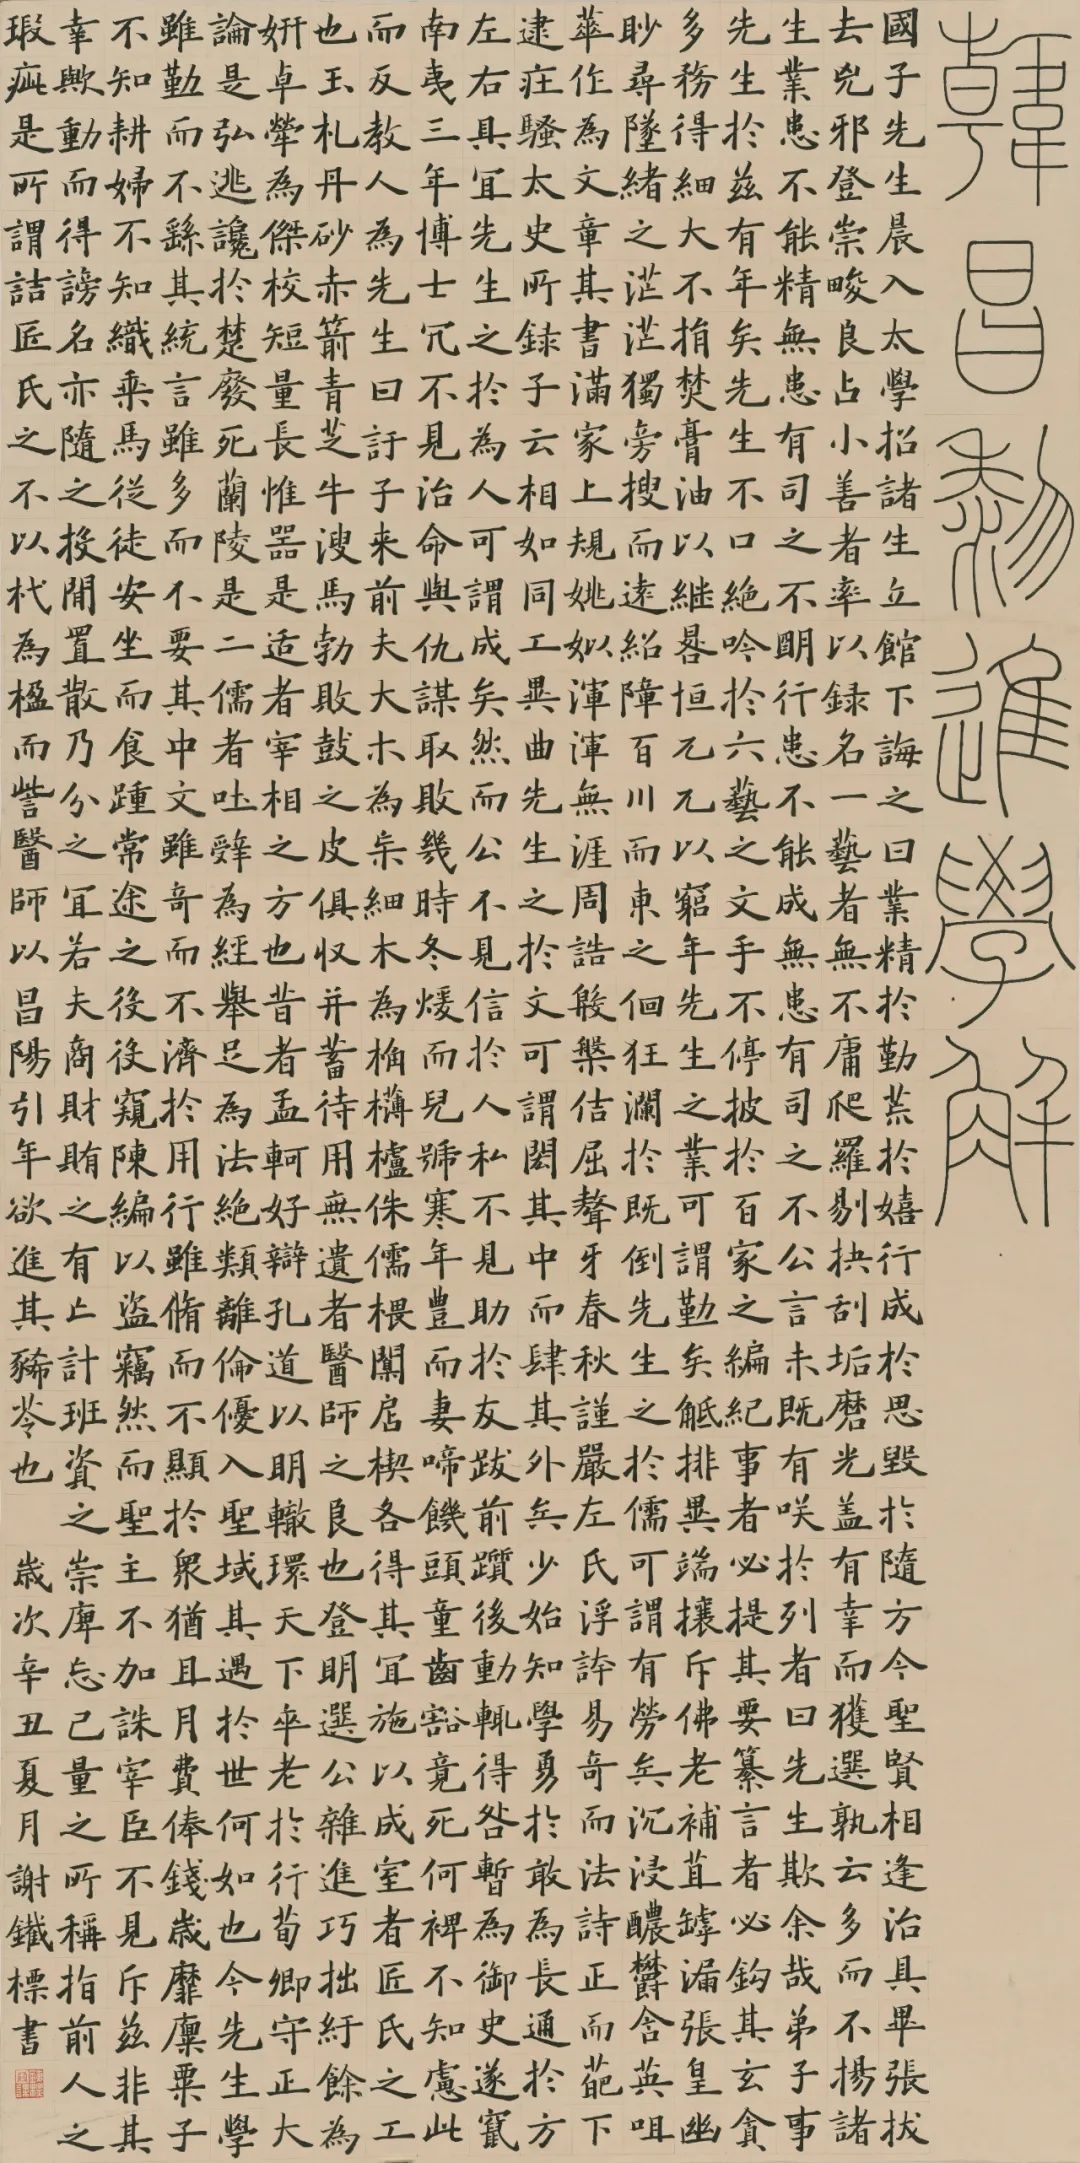 韓昌黎進學解
國子先生晨入太學招諸生立館下誨之曰業精於勤荒於嬉行成於思毀於隨方今聖賢相逢治具畢張拔
去兇邪登崇畯良占小善者率以録名一藝者無不庸爬羅剔抉刮垢磨光盖有幸而獲選孰云多而不揚諸
生業患不能精無患有司之不明行患不能成無患有司之不公言未既有咲於列者曰先生欺余哉弟子事
先生於兹有年矣先生不口絶吟於六藝之文手不停披於百家之編紀事者必提其要纂言者必鈎其玄貪
多務得細大不捐焚膏油以継晷恒兀兀以窮年先生之業可謂勤矣觝排異端攘斥佛老補苴罅漏張皇幽
眇尋墜緒之茫茫獨旁搜而遠紹障百川而東之佪狂瀾於既倒先生之於儒可謂有勞矣沉浸醲鬱含英咀
華作為文章其書滿家上規姚姒渾渾無涯周誥殷槃佶屈聱牙春秋謹嚴左氏浮誇易奇而法詩正而葩下
逮莊騷太史所録子云相如同工異曲先生之於文可謂閎其中而肆其外矣少始知學勇於敢為長通於方
左右具宜先生之於為人可謂成矣然而公不見信於人私不見助於友跋前躓後動輒得咎暫為御史遂竄
南夷三年博士冗不見治命與仇謀取敗幾時冬煖而兒號寒年豊而妻啼饑頭童齒豁竟死何裨不知慮此
而反教人為先生曰訏子来前夫大木為杗細木為桷欂櫨侏儒椳闑扂楔各得其宜施以成室者匠氏之工
也玉札丹砂赤箭青芝牛溲馬勃敗鼓之皮俱収并蓄待用無遺者醫師之良也登明選公雜進巧拙紆餘為
妍卓犖為傑校短量長惟器是适者宰相之方也昔者孟軻好辯孔道以明轍環天下卒老於行荀卿守正大
論是弘逃讒於楚廢死蘭陵是二儒者吐辤為經舉足為法絶類離倫優入聖域其遇於世何如也今先生學
雖勤而不繇其統言雖多而不要其中文雖奇而不濟於用行雖脩而不顯於衆猶且月費俸錢歲靡廩粟子
不知耕婦不知織乗馬從徒安坐而食踵常途之役役窺陳編以盜竊然而聖主不加誅宰臣不見斥兹非其
幸歟動而得謗名亦隨之投閒置散乃分之宜若夫商財賄之有亡計班資之崇庳忘己量之所稱指前人之
瑕疵是所謂詰匠氏之不以杙為楹而訾醫師以昌陽引年欲進其豨苓也 歲次辛丑夏月謝鐵標書